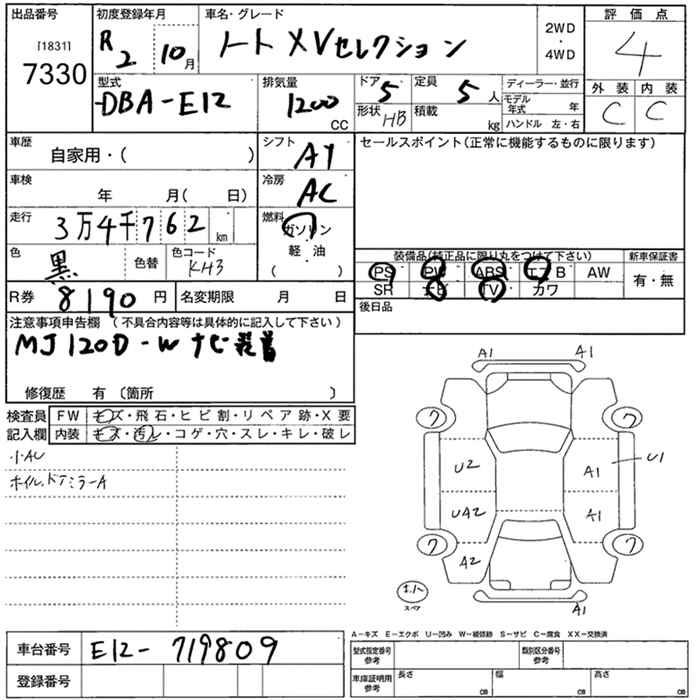 出品番号 初度登録年月 車名・グレード 2WD・4WD 評価点
[1831] 7330 R2 10月 ノート X Vセレクション 4
型式 排気量 ドア 定員 ディーラー・並行 外装 内装
DBA-E12 1200 CC 5 5人 モデル年式 年 C C
形状 HB 積載 kg ハンドル 左・右
車歴 自家用・( ) シフト AT セールスポイント(正常に機能するものに限ります)
車検 年 月( 日) 冷房 AC
走行 3万4千762km 燃料 ガソリン・軽油・( )
色 黒 色替 色コード KH3 装備品(純正品に限り丸をつけて下さい) 新車保証書
PS PW ABS エアB AW 有・無
R券 8190円 名変期限 月 日 SR ナビ TV カワ
注意事項申告欄 (不具合内容等は具体的に記入して下さい) 後日品
MJ120D-W ナビ装着
修復歴 有〔箇所 〕
検査員 FW キズ・飛石・ヒビ割・リペア跡・X要
記入欄 内装 キズ・汚レ・コゲ・穴・スレ・キレ・破レ
小AU
ホイル、ドアミラーA
A1 A1
ワ ワ
U2 A1 U1
UA2 A1
ワ ワ
A2
スペア
A1
A-キズ E-エクボ U-凹み W-補修跡 S-サビ C-腐食 XX-交換済
車台番号 E12-719809 型式指定番号 参考 類別区分番号 参考
登録番号 車庫証明用 参考 長さ cm 幅 cm 高さ cm